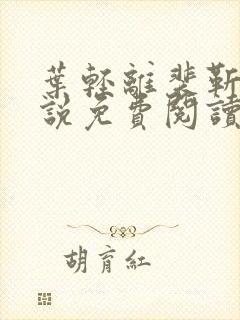 葉輕離裴靳
說免費閱讀
胡育紅